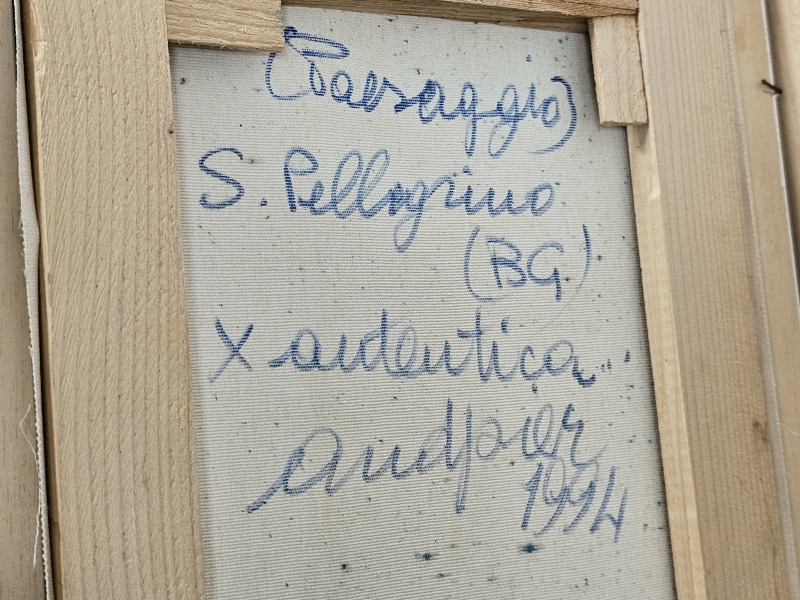 (Paesaggio)
S. Pellegrino
(BG.)
X autentica...
1994